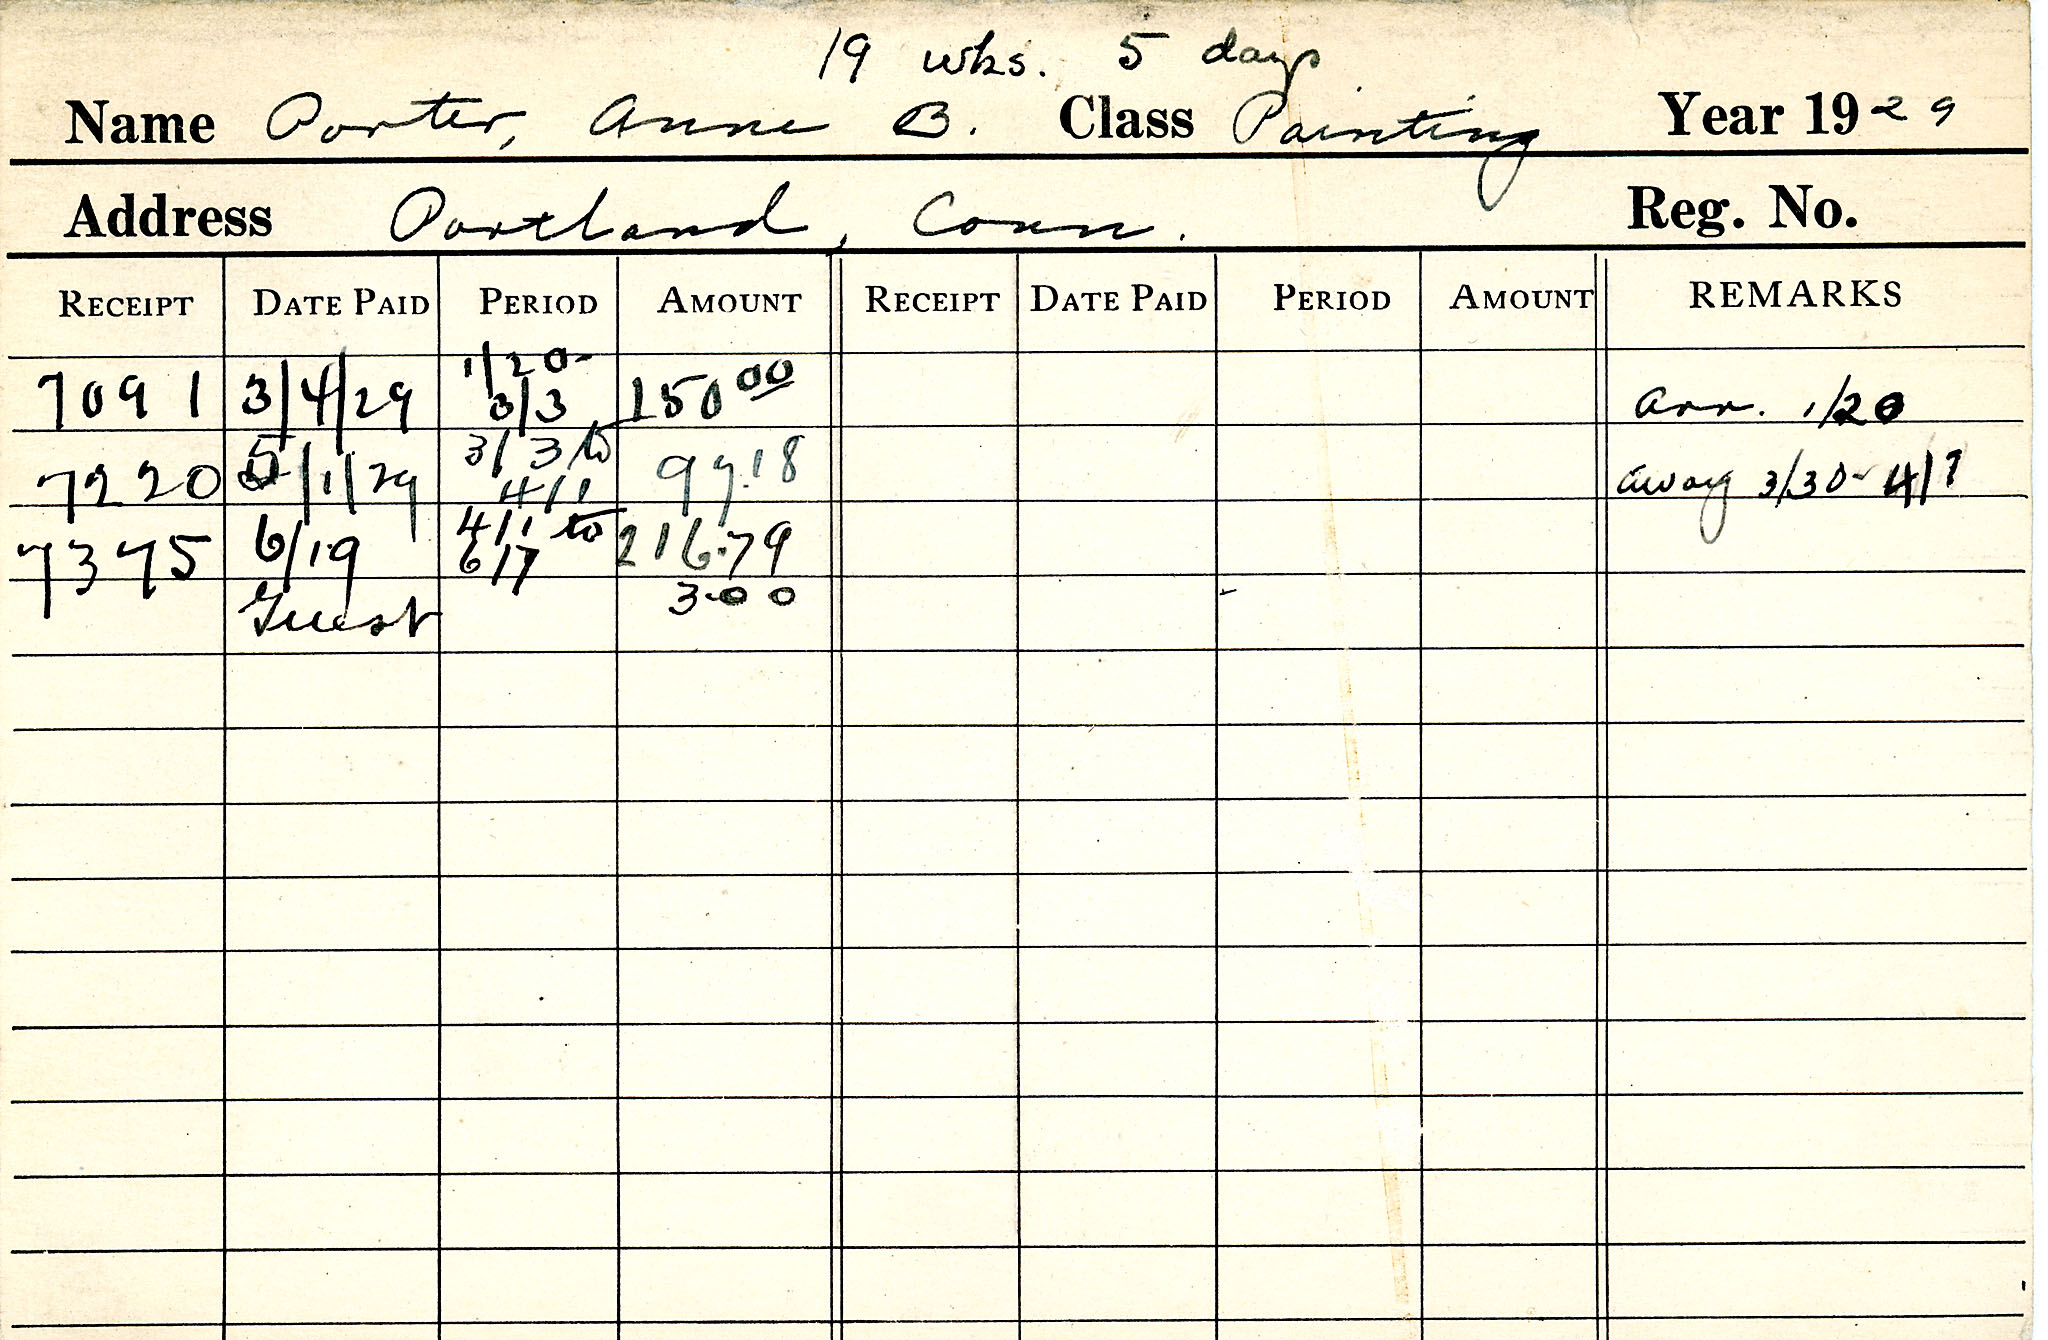 19 wks. 5 days
Name Porter, Anne B. Class Painting Year 1929
Address Portland, Conn. Reg. No.
RECEIPT DATE PAID PERIOD AMOUNT RECEIPT DATE PAID PERIOD AMOUNT REMARKS
1/20-
7091 3/4/29 3/3 150 00 arr. 1/20
3/3 to
7220 5/1/29 4/1 97.18 away 3/30-4/7
4/1 to
7375 6/19 6/7 216.79
Guest 3.00